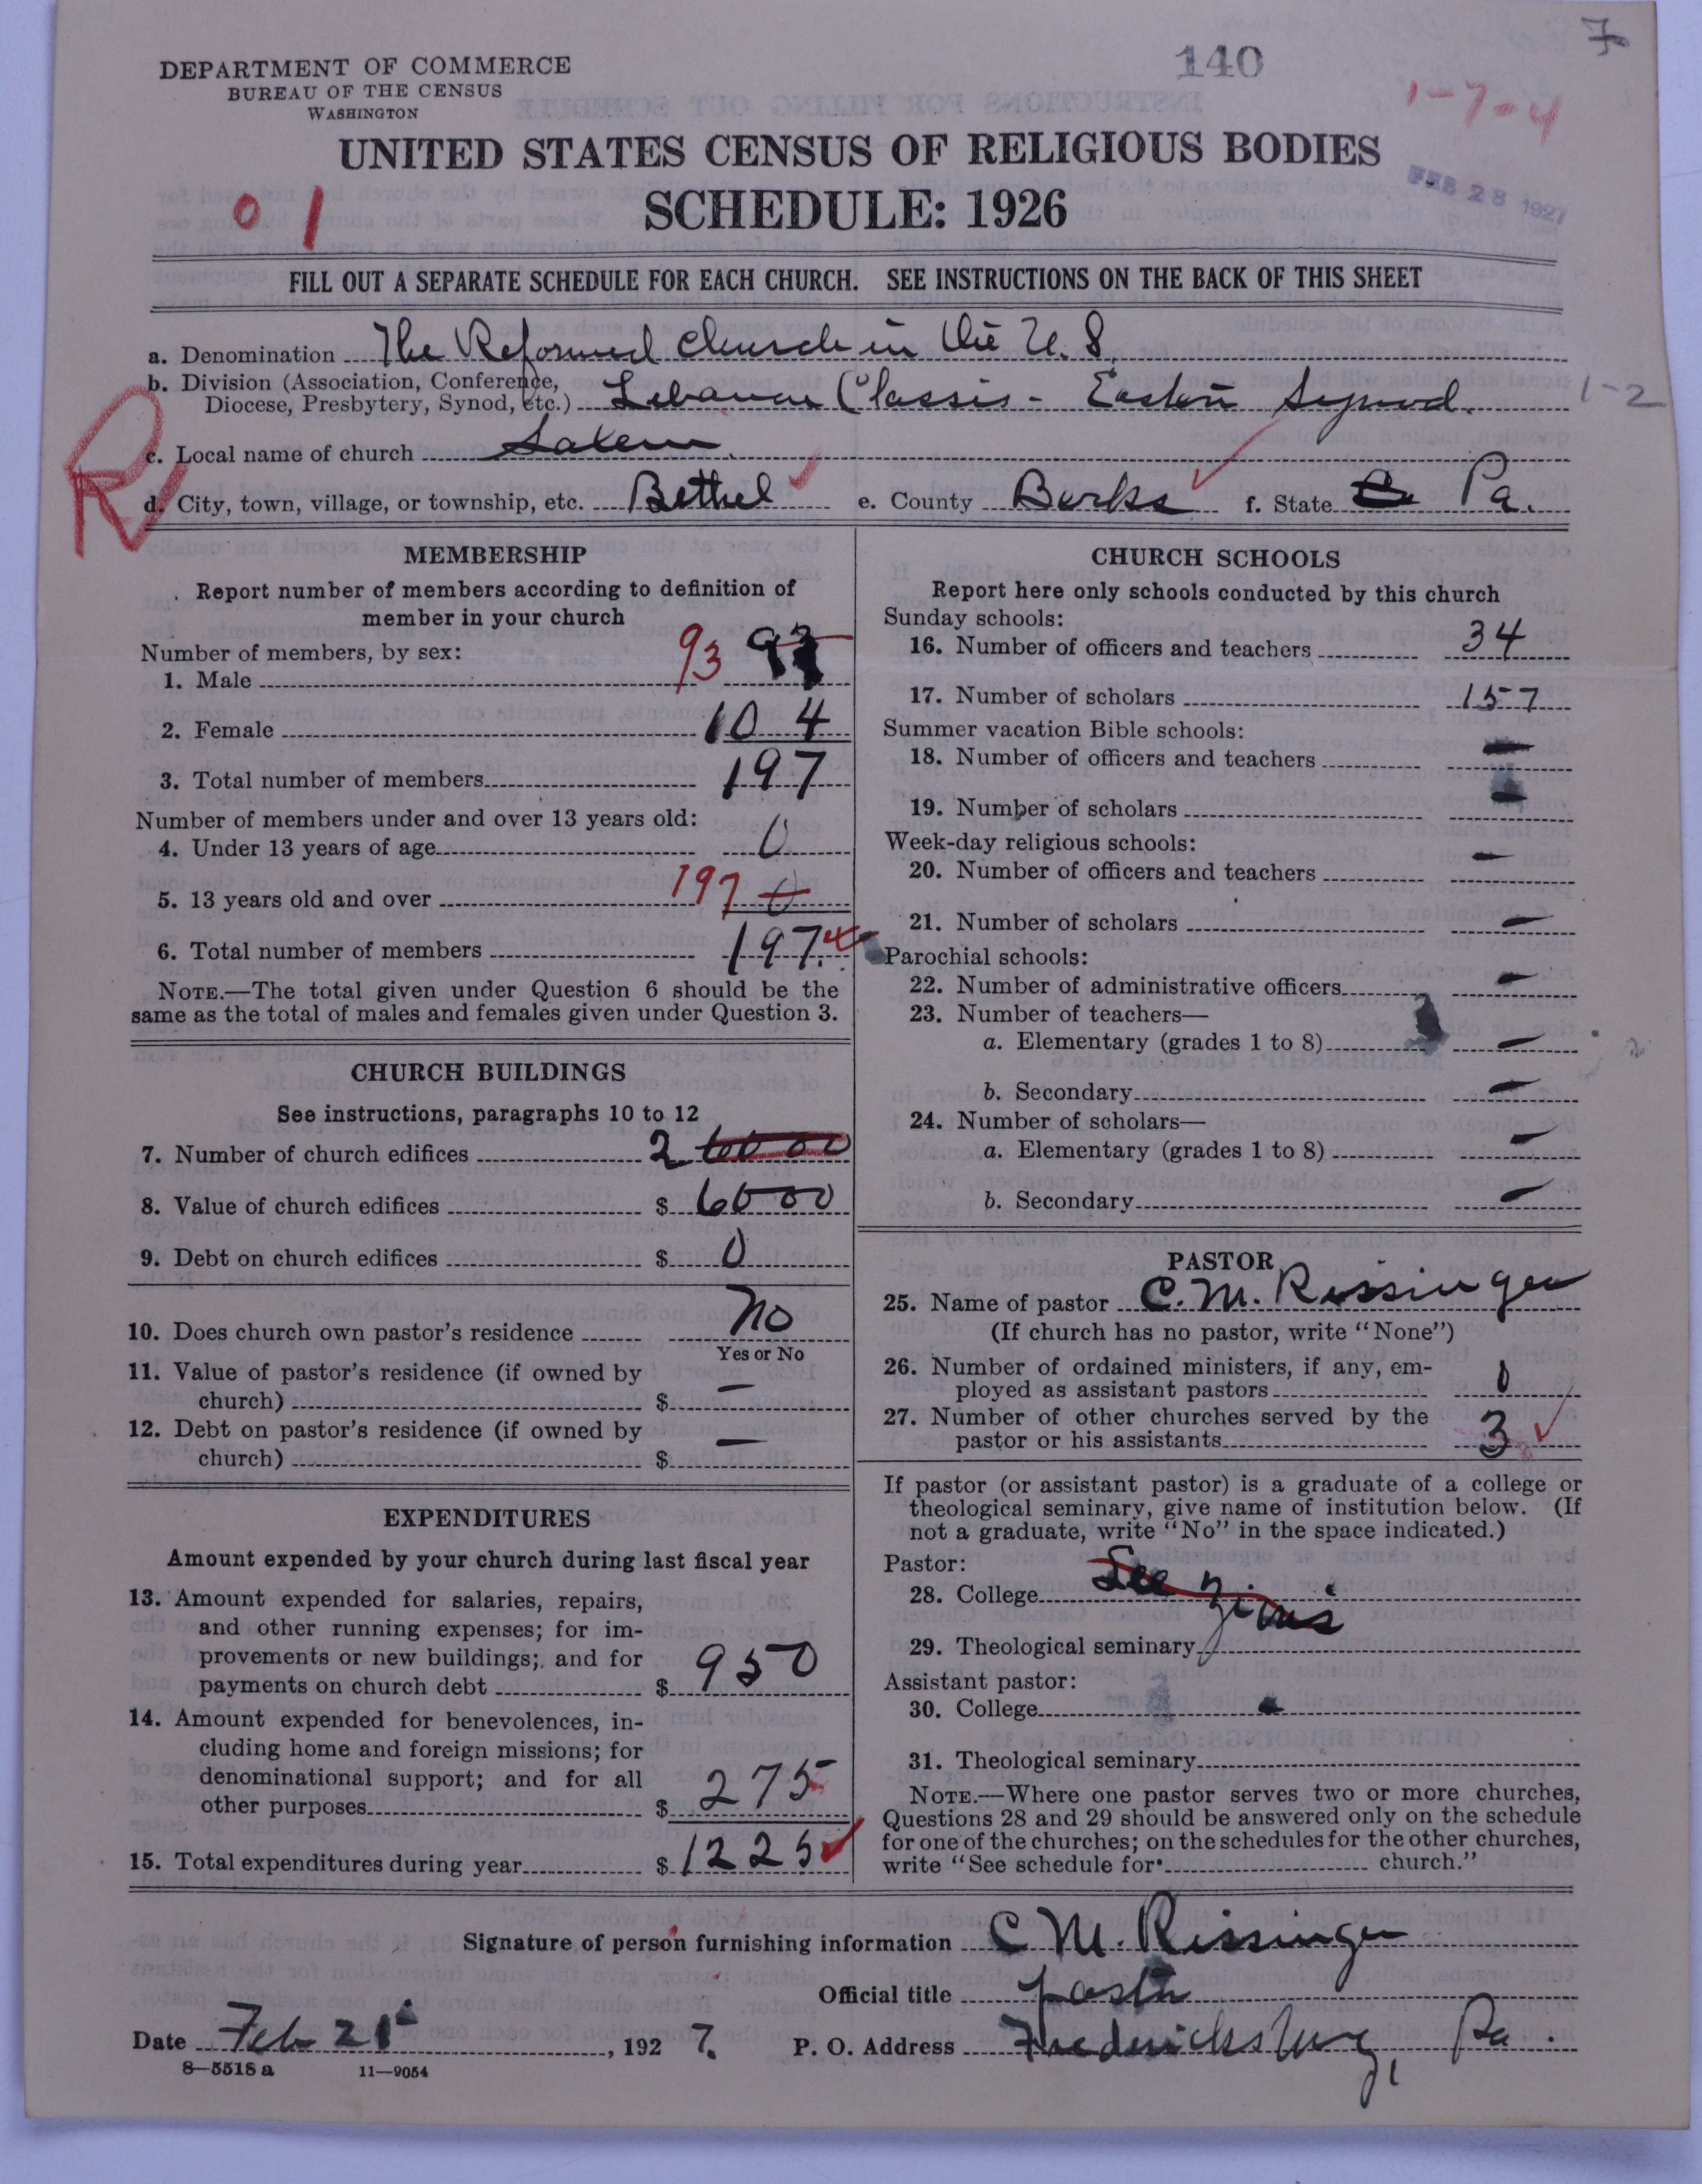 7
140
1-7-4
DEPARTMENT OF COMMERCE
BUREAU OF THE CENSUS
WASHINGTON
UNITED STATES CENSUS OF RELIGIOUS BODIES
SCHEDULE: 1926
FEB 28 1927
01
FILL OUT A SEPARATE SCHEDULE FOR EACH CHURCH. SEE INSTRUCTIONS ON THE BACK OF THIS SHEET
a. Denomination The Reformed Church in the U.S.
b. Division (Association, Conference,
Diocese, Presbytery, Synod, etc.) Lebanon Classis - Eastern Synod. 1-2
R
c. Local name of church Salem
d. City, town, village, or township, etc. Bethel e. County Berks f. State Pa.
MEMBERSHIP
Report number of members according to definition of
member in your church
Number of members, by sex:
1. Male 93
2. Female 104
3. Total number of members 197
Number of members under and over 13 years old:
4. Under 13 years of age 0
5. 13 years old and over 197 0
6. Total number of members 197
NOTE.—The total given under Question 6 should be the
same as the total of males and females given under Question 3.
CHURCH BUILDINGS
See instructions, paragraphs 10 to 12
7. Number of church edifices 2 6000
8. Value of church edifices $ 6000
9. Debt on church edifices $ 0
10. Does church own pastor's residence No
Yes or No
11. Value of pastor's residence (if owned by
church) $ —
12. Debt on pastor's residence (if owned by
church) $ —
EXPENDITURES
Amount expended by your church during last fiscal year
13. Amount expended for salaries, repairs,
and other running expenses; for im-
provements or new buildings; and for
payments on church debt $ 950
14. Amount expended for benevolences, in-
cluding home and foreign missions; for
denominational support; and for all
other purposes $ 275
15. Total expenditures during year $ 1225
CHURCH SCHOOLS
Report here only schools conducted by this church
Sunday schools:
16. Number of officers and teachers 34
17. Number of scholars 157
Summer vacation Bible schools:
18. Number of officers and teachers —
19. Number of scholars —
Week-day religious schools:
20. Number of officers and teachers —
21. Number of scholars —
Parochial schools:
22. Number of administrative officers —
23. Number of teachers—
a. Elementary (grades 1 to 8) —
b. Secondary —
24. Number of scholars—
a. Elementary (grades 1 to 8) —
b. Secondary —
PASTOR
25. Name of pastor C. M. Rissinger
(If church has no pastor, write "None")
26. Number of ordained ministers, if any, em-
ployed as assistant pastors 0
27. Number of other churches served by the
pastor or his assistants 3
If pastor (or assistant pastor) is a graduate of a college or
theological seminary, give name of institution below. (If
not a graduate, write "No" in the space indicated.)
Pastor:
28. College See Zions
29. Theological seminary
Assistant pastor:
30. College
31. Theological seminary
NOTE.—Where one pastor serves two or more churches,
Questions 28 and 29 should be answered only on the schedule
for one of the churches; on the schedules for the other churches,
write "See schedule for church."
Signature of person furnishing information C M. Rissinger
Official title Pastor
Date Feb 21, 1927. P. O. Address Fredericksburg, Pa.
8—5518 a 11—9054